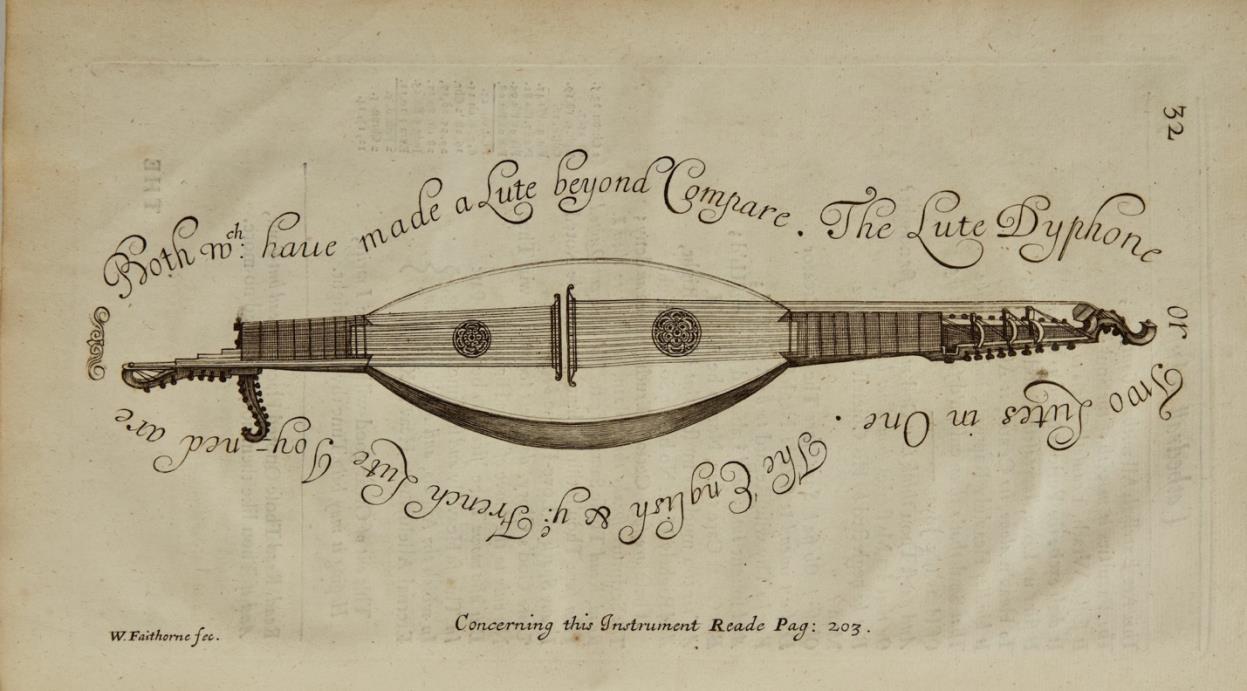 32
The Lute Dyphone
or
Two Lutes in One. The English & y:e French Lute Joy-ned are
Both w:ch haue made a Lute beyond Compare.
Concerning this Instrument Reade Pag: 203.
W. Faithorne fec.